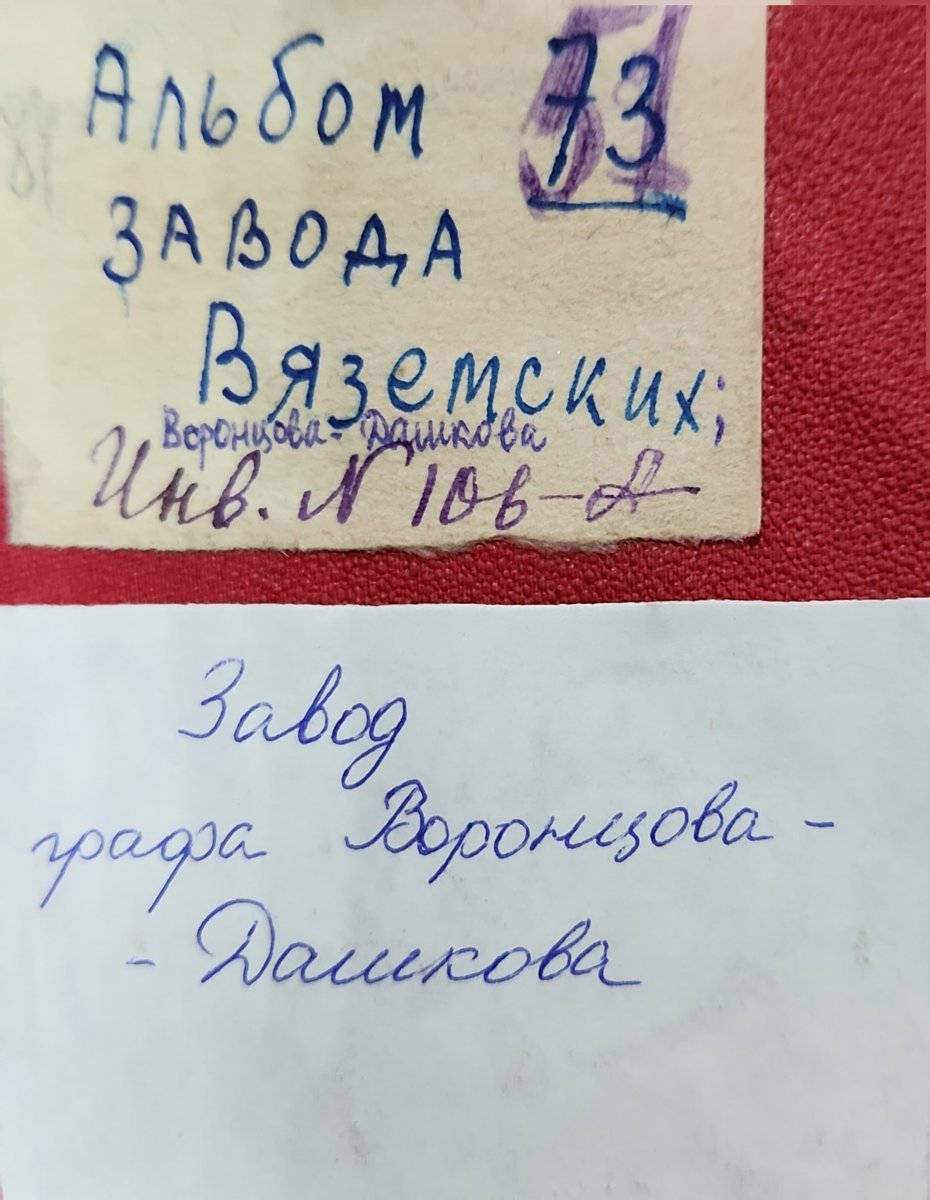 Альбом 73
ЗАВОДА
Вяземских;
Воронцова-Дашкова
Инв. N 106-А
Завод
графа Воронцова -
- Дашкова